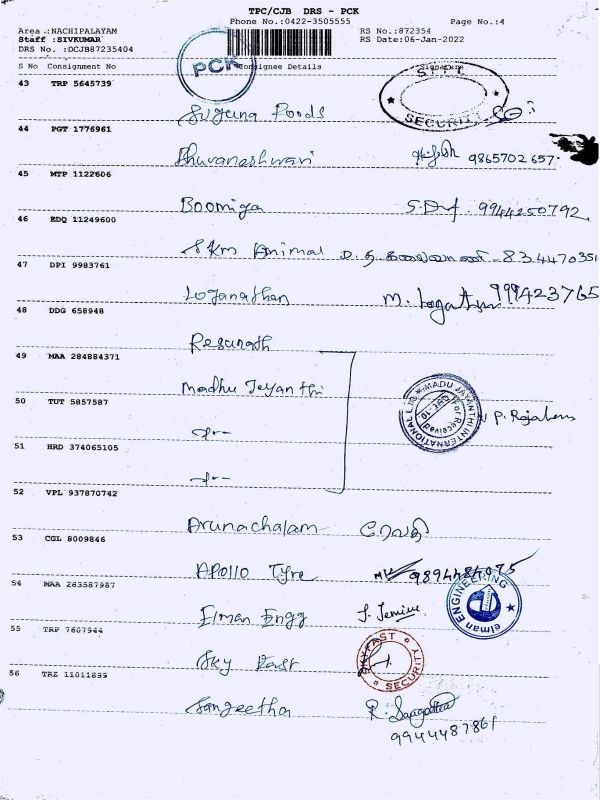 TPC/CJB DRS - PCK
Phone No.:0422-3505555 Page No.:4
Area :NACHIPALAYAM RS No.:872354
Staff :SIVKUMAR RS Date:06-Jan-2022
DRS No. :DCJB87235404
S No Consignment No Consignee Details Signature
PCK
S.T.P.L. SECURITY
43 TRP 5645739
Suguna Foods
44 PGT 1776961
Bhuvaneshwari 9865702657
45 MTP 1122606
Boomiga 9944250792
46 EDQ 11249600
SKM Animal 834470351
47 DPI 9983761
Loganathan M. 999423765
48 DDG 658948
49 MAA 284884371
Madhu Jeyanthi
MADU JAYANTHI INTERNATIONAL LTD
For Received
50 TUT 5857587
P. Rajalens
51 HRD 374065105
52 VPL 937870742
Arunachalam ரேவதி
53 CGL 8009846
Apollo Tyre 9894484075
54 MAA 283587987
Elman Engg
elman ENGINEERING
55 TRP 7607944
Sky Fast
SKYFAST SECURITY
56 TRZ 11011899
Sangeetha R.
9944487861